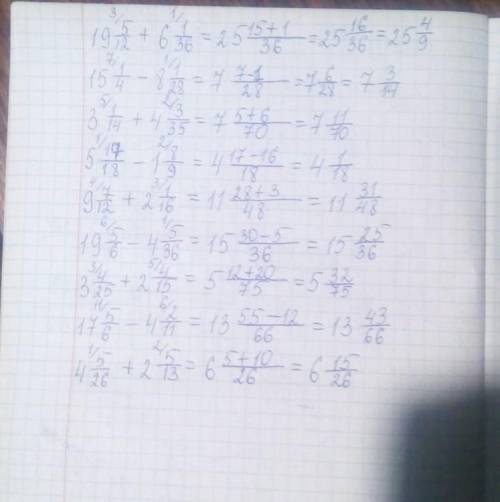 19 ³⁄5/12 + 6 ¹⁄1/36 = 25 (15+1)/36 = 25 16/36 = 25 4/9
15 ⁷⁄1/4 − 8 ¹⁄1/28 = 7 (7−1)/28 = 7 6/28 = 7 3/14
3 ⁵⁄1/14 + 4 ²⁄3/35 = 7 (5+6)/70 = 7 11/70
5 ¹⁄17/18 − 1 ²⁄8/9 = 4 (17−16)/18 = 4 1/18
9 ⁴⁄7/12 + 2 ³⁄1/16 = 11 (28+3)/48 = 11 31/48
19 ⁶⁄5/6 − 4 ¹⁄5/36 = 15 (30−5)/36 = 15 25/36
3 ³⁄4/25 + 2 ⁵⁄4/15 = 5 (12+20)/75 = 5 32/75
17 ¹¹⁄5/6 − 4 ⁶⁄2/11 = 13 (55−12)/66 = 13 43/66
4 ¹⁄5/26 + 2 ²⁄5/13 = 6 (5+10)/26 = 6 15/26